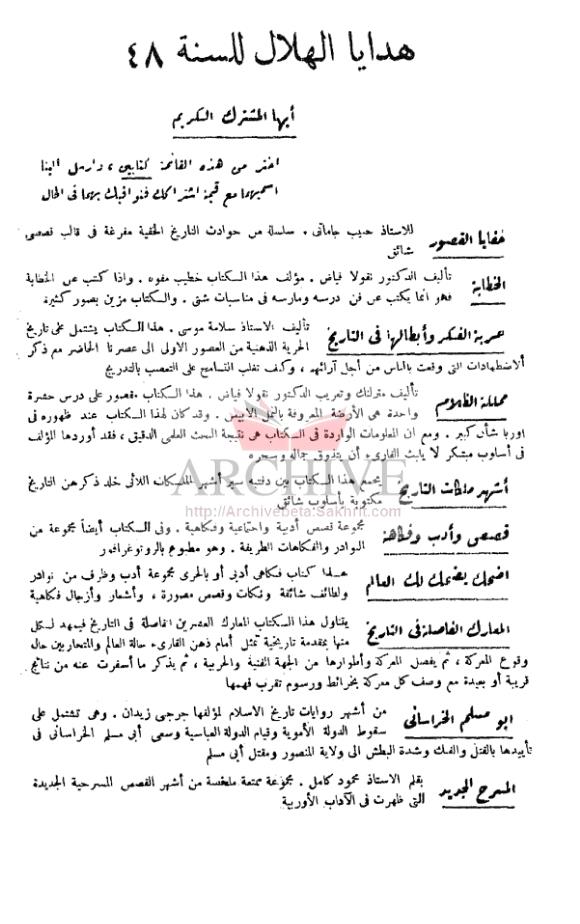 هدايا الهلال للسنة ٤٨
أيها المشترك الكريم
اختر من هذه القائمة كتابين ، وارسل الينا
اسميهما مع قيمة اشتراكك فنوافيك بهما فى الحال
خفايا القصور
للاستاذ حبيب جاماتى . سلسلة من حوادث التاريخ الخفية مفرغة فى قالب قصصى
شائق
الخطابة
تأليف الدكتور نقولا فياض . مؤلف هذا الكتاب خطيب مفوه . واذا كتب عن الخطابة
فهو انما يكتب عن فن درسه ومارسه فى مناسبات شتى . والكتاب مزين بصور كثيرة
حرية الفكر وأبطالها فى التاريخ
تأليف الاستاذ سلامة موسى . هذا الكتاب يشتمل على تاريخ
الحرية الذهنية من العصور الاولى الى عصرنا الحاضر مع ذكر
الاضطهادات التى وقعت بالناس من أجل آرائهم ، وكيف تغلب التسامح على التعصب بالتدريج
مملكة الظلام
تأليف مترلنك وتعريب الدكتور نقولا فياض . هذا الكتاب مقصور على درس حشرة
واحدة هى الأرضة المعروفة بالنمل الابيض . وقد كان لهذا الكتاب عند ظهوره فى
اوربا شأن كبير . ومع ان المعلومات الواردة فى الكتاب هى نتيجة البحث العلمى الدقيق ، فقد أوردها المؤلف
فى أسلوب مبتكر لا يلبث القارىء أن يتذوق جماله وسحره
ARCHIVE
http://Archivebeta.Sakhrit.com
أشهر ملكات التاريخ
يجمع هذا الكتاب بين دفتيه سير أشهر الملكات اللائى خلد ذكرهن التاريخ
مكتوبة بأسلوب شائق
قصص وأدب وفكاهة
مجموعة قصص أدبية واجتماعية وفكاهية . وفى الكتاب أيضاً مجموعة من
النوادر والفكاهات الطريفة . وهو مطبوع بالروتوغرافور
اضحك يضحك لك العالم
هذا كتاب فكاهى أدبى أو بالحرى مجموعة أدب وظرف من نوادر
ولطائف شائقة ونكات وقصص مصورة ، وأشعار وأزجال فكاهية
المعارك الفاصلة فى التاريخ
يتناول هذا الكتاب المعارك العشرين الفاصلة فى التاريخ فيمهد لكل
منها بمقدمة تاريخية تمثل أمام ذهن القارىء حالة العالم والمتحاربين حال
وقوع المعركة ، ثم يفصل المعركة وأطوارها من الجهة الفنية والحربية ، ثم يذكر ما أسفرت عنه من نتائج
قريبة أو بعيدة مع وصف كل معركة بخرائط ورسوم تقرب فهمها
ابو مسلم الخراسانى
من أشهر روايات تاريخ الاسلام لمؤلفها جرجى زيدان . وهى تشتمل على
سقوط الدولة الأموية وقيام الدولة العباسية وسعى أبى مسلم الخراسانى فى
تأييدها بالقتل والفتك وشدة البطش الى ولاية المنصور ومقتل أبى مسلم
المسرح الجديد
بقلم الاستاذ محمود كامل . مجموعة ممتعة ملخصة من أشهر القصص المسرحية الجديدة
التى ظهرت فى الآداب الأوربية